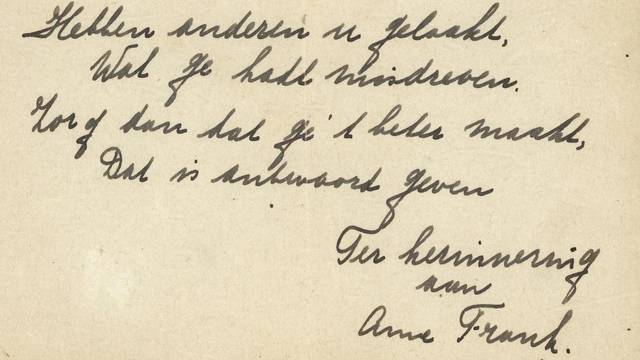 Hebben anderen u gelaakt,
Wat ge hadt misdreven.
Zorg dan dat ge 't beter maakt,
Dat is antwoord geven
Ter herinnering
aan
Anne Frank.